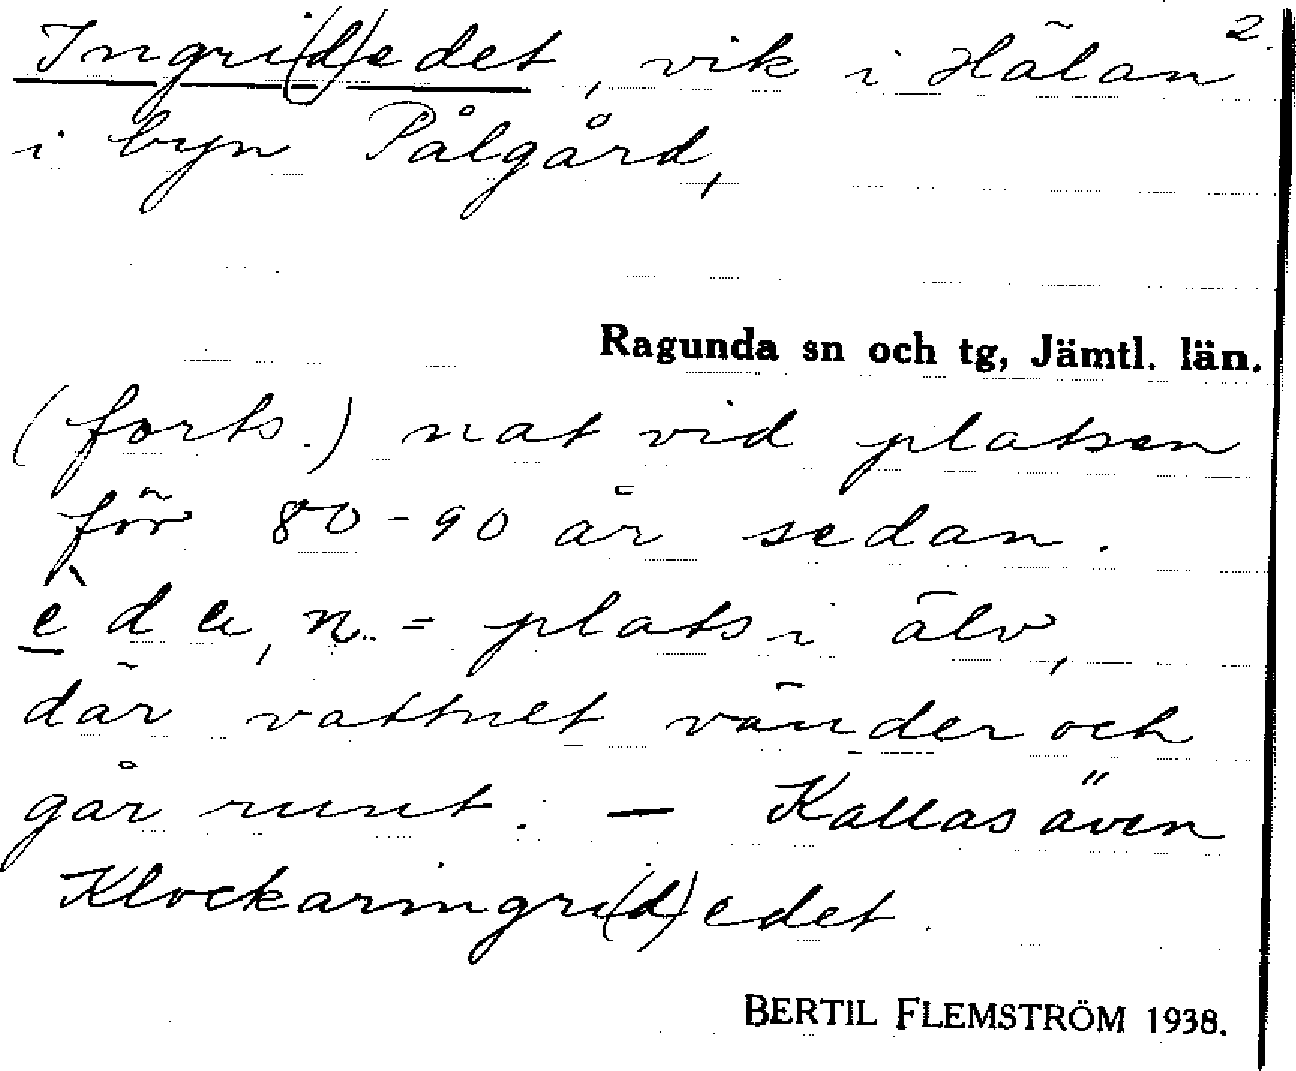 Ingri(d)edet, vik i Hälan 2.
i byn Pålgård,
Ragunda sn och tg, Jämtl. län.
(forts.) nat vid platsen
för 80-90 år sedan.
è d e, n. = plats i älv,
där vattnet vänder och
går runt. – Kallas även
Klockaringri(d)edet.
BERTIL FLEMSTRÖM 1938.